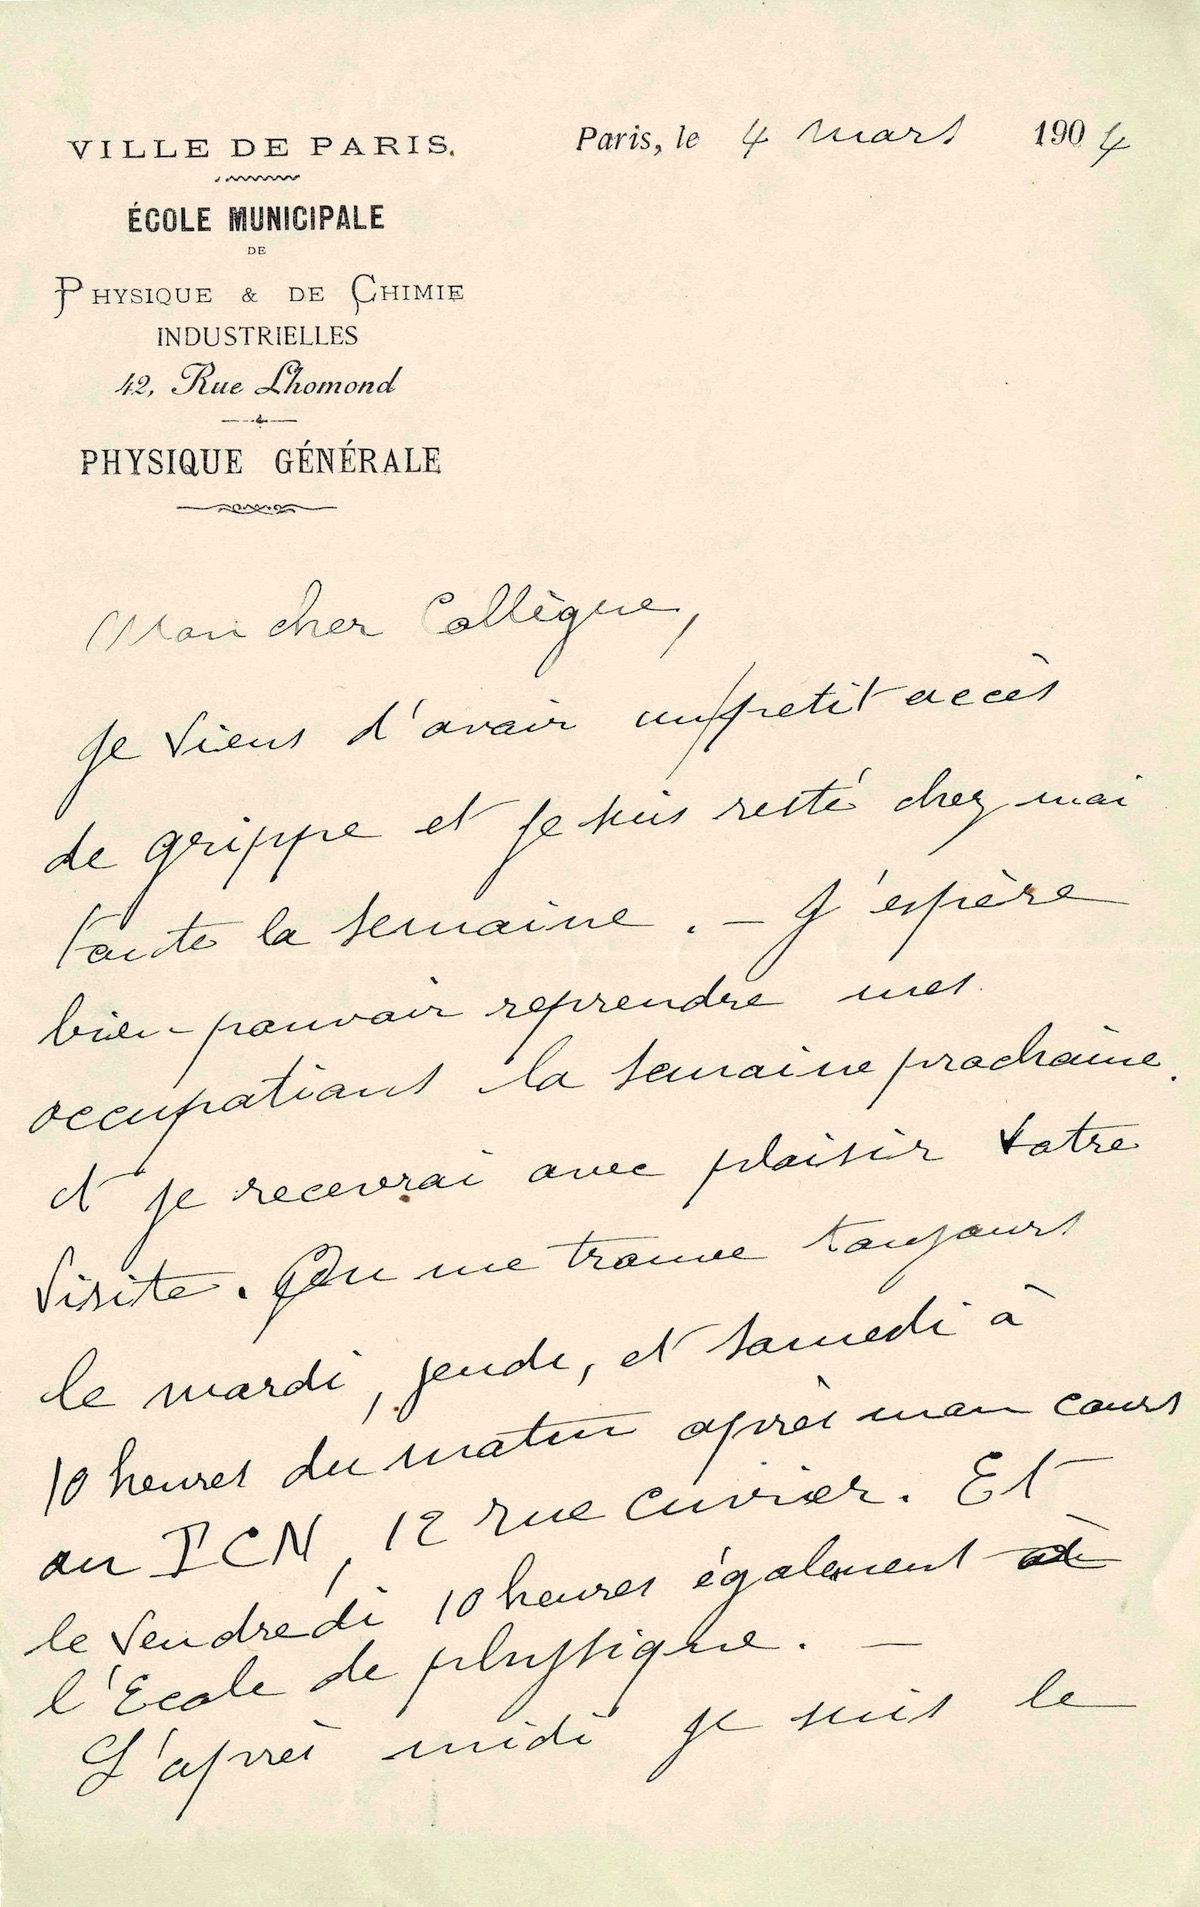 VILLE DE PARIS.
ÉCOLE MUNICIPALE
DE
PHYSIQUE & DE CHIMIE
INDUSTRIELLES
42, Rue Lhomond
PHYSIQUE GÉNÉRALE
Paris, le 4 mars 1904
Mon cher Collègue,
Je viens d'avoir un petit accès
de grippe et je suis resté chez moi
toute la semaine. – J'espère
bien pouvoir reprendre mes
occupations la semaine prochaine.
et je recevrai avec plaisir votre
visite. On me trouve toujours
le mardi, jeudi, et samedi à
10 heures du matin après mon cours
au PCN, 12 rue Cuvier. Et
le vendredi 10 heures également à
l'Ecole de physique. –
L'après midi je suis le